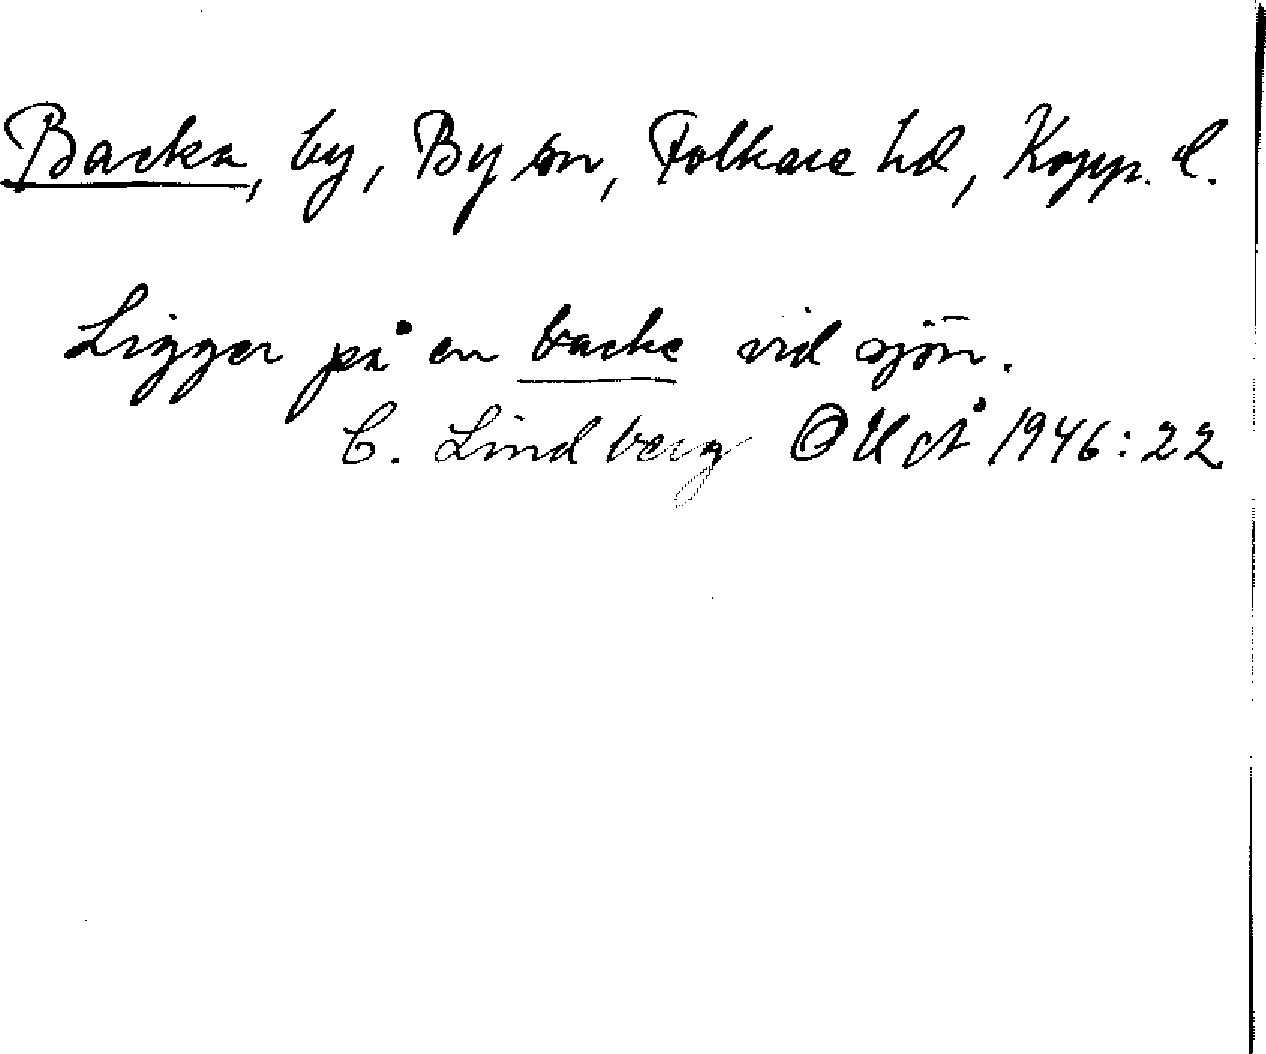 Backa, by, By sn, Folkare hd, Kopp. l.
Ligger på en backe vid sjön.
C. Lindberg OUÅ 1946:22